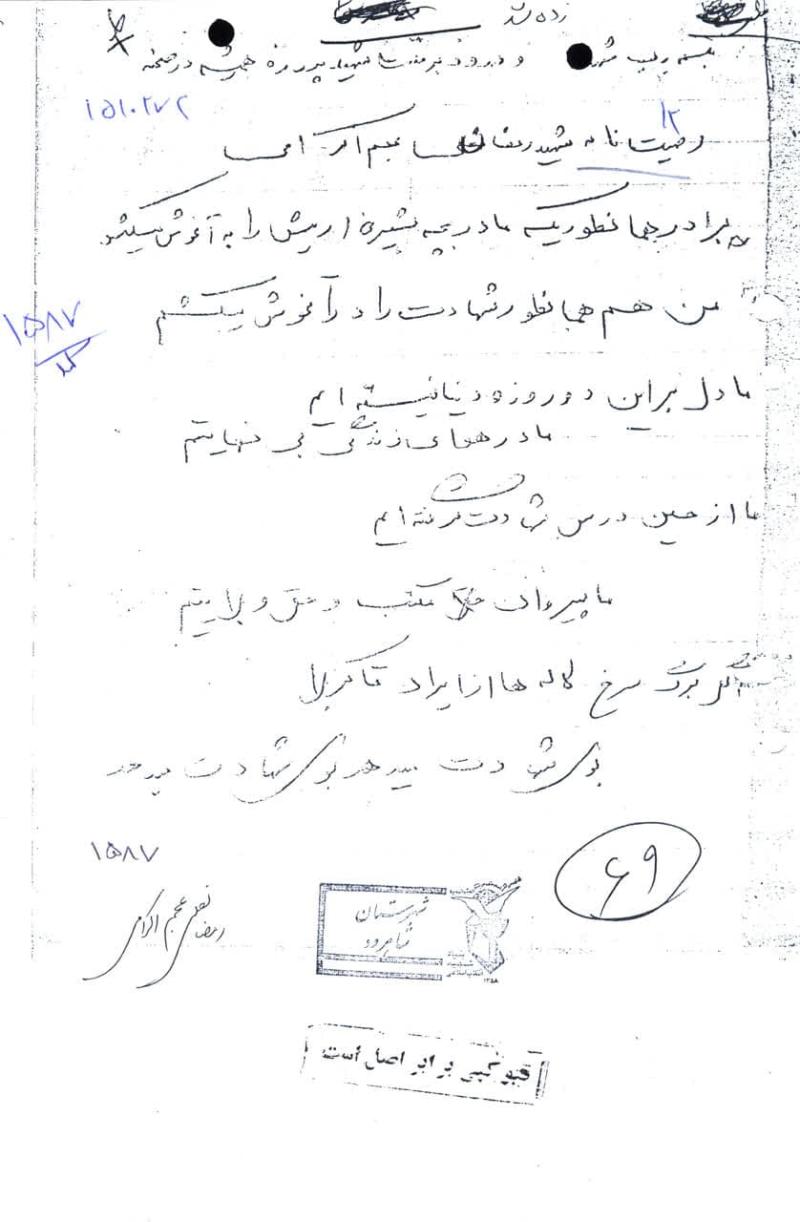 زده شد
بسم رب شهدا و درود بر شهید پرور همیشه در صحنه
۱۵۱۰۲۷۲
۱۲
وصیت نامه شهید رمضانعلی عجم اکرامی
برادر همانطوریکه مادر بچه شیری اریش را به آغوش میکشد
من هم همانطور شهادت را در آغوش میکشم
۱۵۸۷
کد
ما دل براین دو روزه دنیا نبسته ایم
ما در هوای زندگی بی نهایتم
ما از حسین درس شهادت گرفته ایم
ما پیروان مکتب و حق و ولایتم
گل برگ سرخ لاله ها از ایران تا کربلا
بوی شهادت میدهد بوی شهادت میدهد
۱۵۸۷
۶۹
رمضانعلی عجم اکرامی
شهرستان
شاهرود
۱۳۵۸
فتوکپی برابر اصل است